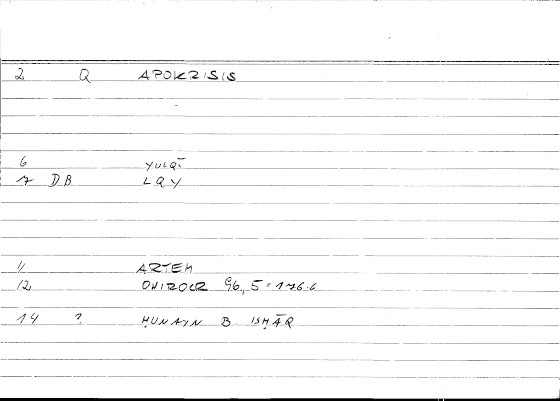 2 Q APOKRISIS
6 YULQĪ
7 DB LQY
11 ARTEM
12 ONIROCR 96,5 = 176.6
14 ? ḤUNAYN B ISḤĀQ